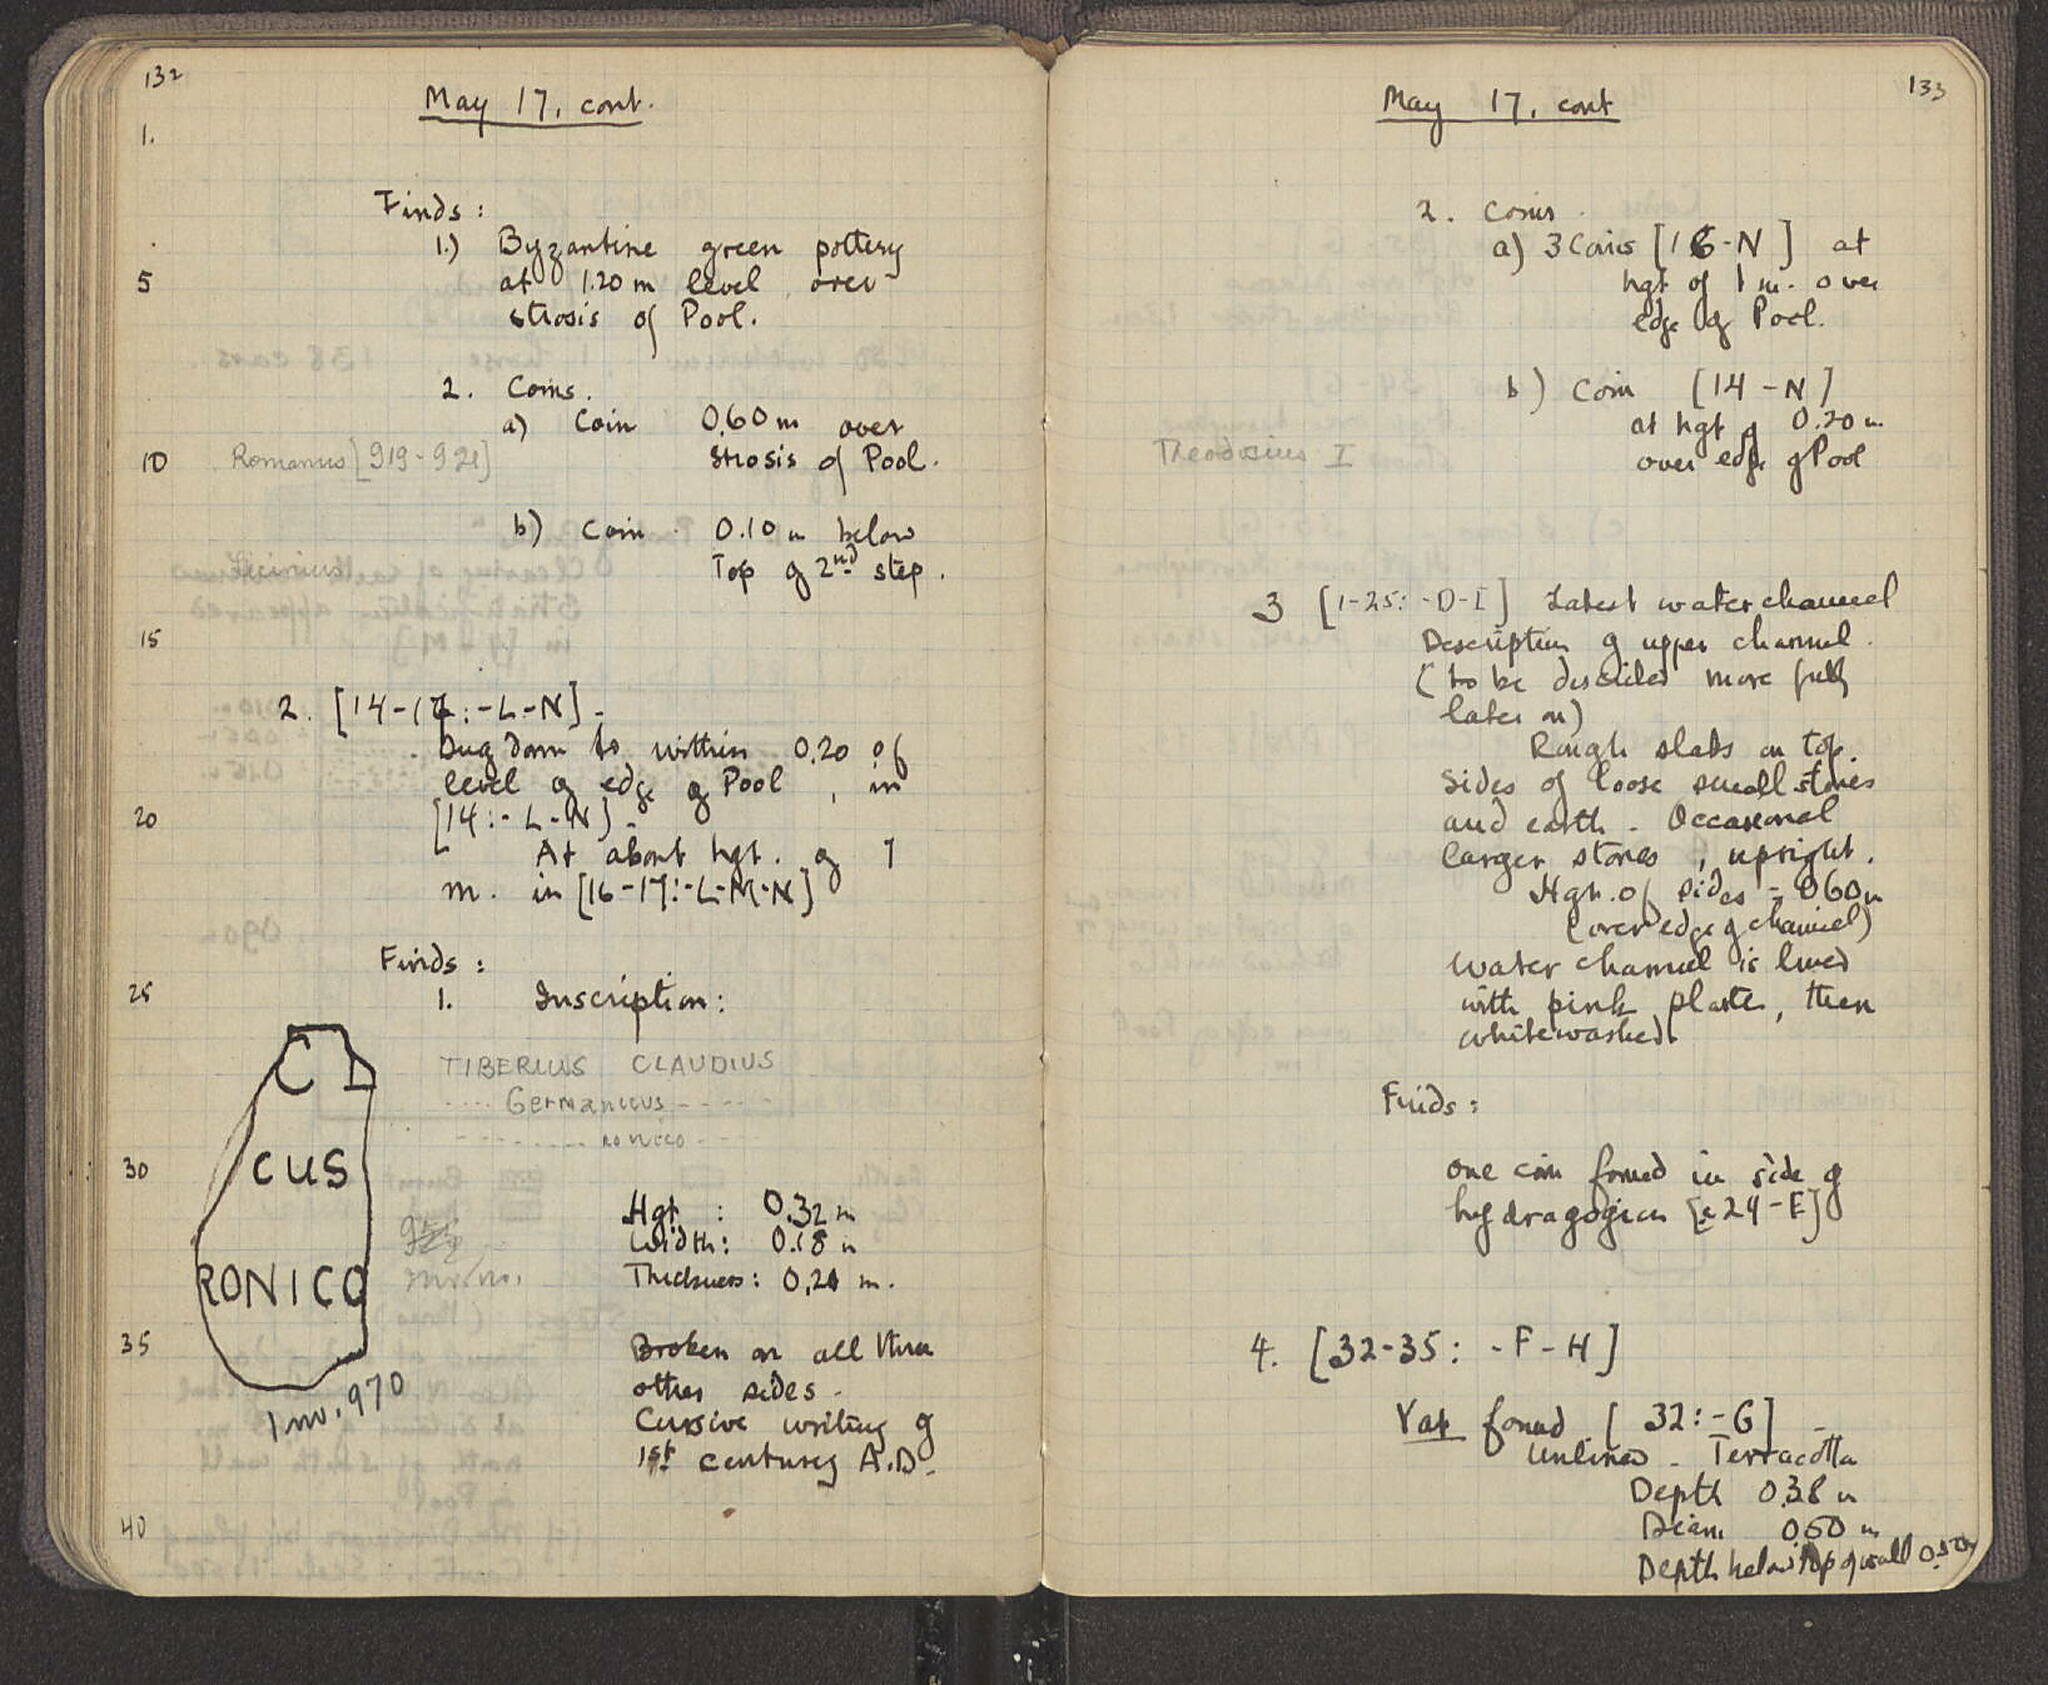 132
May 17, cont.
1.
Finds:
1.) Byzantine green pottery
5 at 1.20 m level over
strosis of Pool.
2. Coins.
a) Coin 0.60 m over
10 Romanus [919-921] strosis of Pool.
b) Coin 0.10 m below
Licinius Top of 2nd step.
15
2. [14-17:-L-N].
Dug down to within 0.20 of
level of edge of Pool, in
20 [14:-L-N].
At about hgt. of 1
m. in [16-17:-L-M-N]
Finds:
25 1. Inscription:
C L
TIBERIUS CLAUDIUS
---- Germanicus -----
-------- RONICO ----
30 CUS
Hgt : 0.32 m
Width: 0.18 m
RONICO Thickness: 0.20 m.
35 Broken on all three
other sides.
Inv. 970
Cursive writing of
1st century A.D.
40
133
May 17, cont
2. Coins.
a) 3 Coins [16-N] at
hgt of 1 m. over
edge of Pool.
b) Coin [14-N]
at hgt of 0.20 m
Theodosius I over edge of Pool
3 [1-25:-D-I] Latest water channel
Description of upper channel.
(to be described more fully
later on)
Rough slabs on top.
Sides of loose small stones
and earth. Occasional
larger stones, upright.
Hgt. of sides = 0.60 m
(over edge of channel)
Water channel is lined
with pink plaster, then
whitewashed.
Finds:
one coin found in side of
hydragogion [24-E]
4. [32-35:-F-H]
Vat found [32:-G]
Unlined. Terracotta
Depth 0.38 m
Diam 0.50 m
Depth below top of wall 0.50m